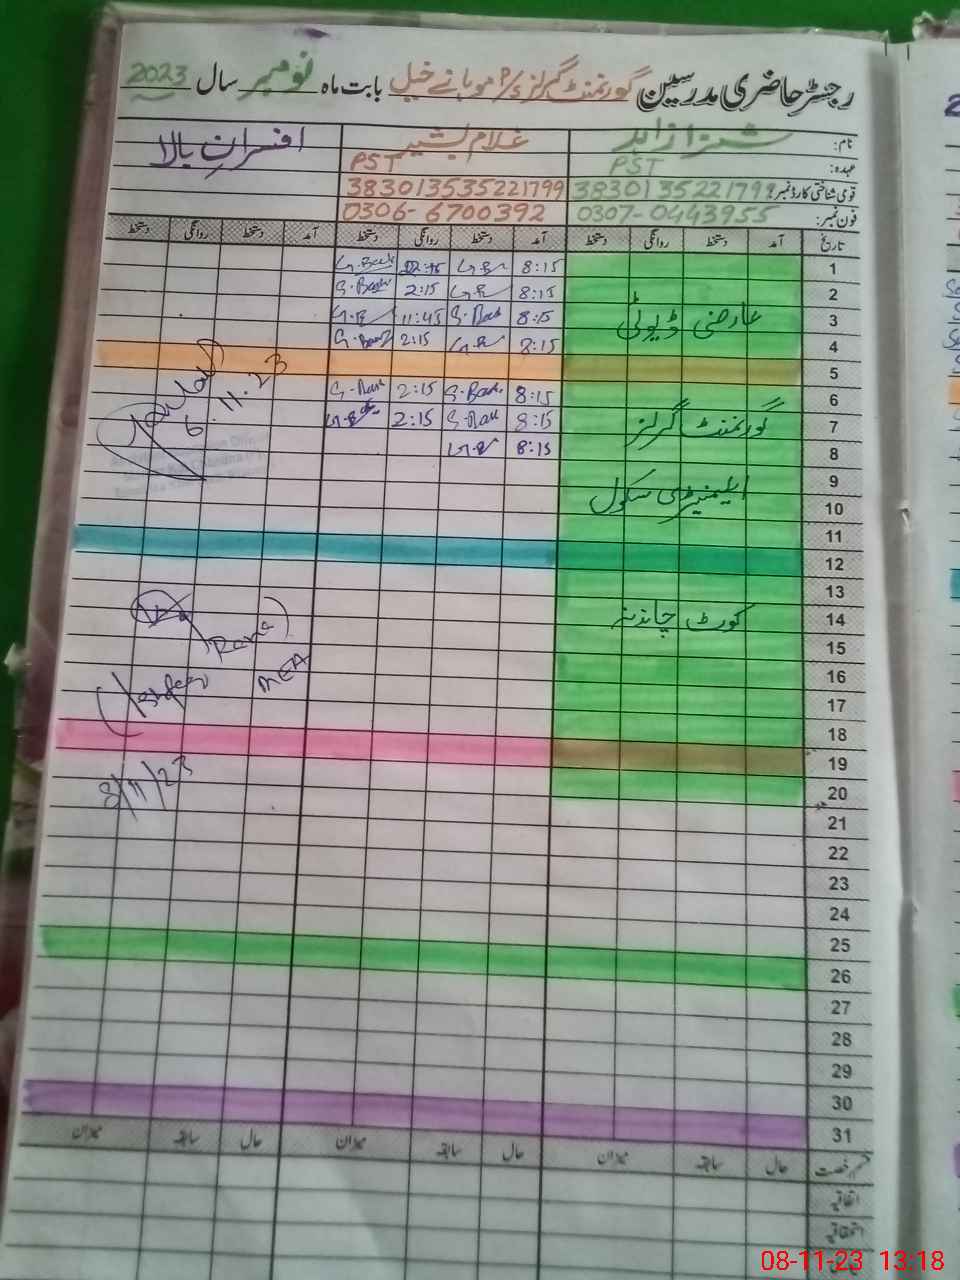 رجسٹر حاضری مدرسین گورنمنٹ گرلز P/S موہانے خیل بابت ماہ نومبر سال 2023
نام: غلام بشیر افسران بالا
عہدہ: PST PST
قومی شناختی کارڈ نمبر: 3830135221799 383013535221799
فون نمبر: 0307-0443955 0306-6700392
تاریخ آمد دستخط روانگی دستخط آمد دستخط روانگی دستخط آمد دستخط روانگی دستخط
1 8:15
2 8:15 2:15
3 عارضی ڈیوٹی 8:15 11:45
4 8:15 2:15
5
6 8:15 2:15 6.11.23
7 گورنمنٹ گرلز 8:15 2:15
8 8:15
9
10 ایلیمنٹری سکول
11
12
13
14 کورٹ چاندنہ
15 Rana
16 MEA
17
18
19
20 8/11/23
21
22
23
24
25
26
27
28
29
30
31
قسم رخصت حال سابقہ میزان حال سابقہ میزان حال سابقہ میزان
اتفاقیہ
استحقاقیہ
08-11-23 13:18